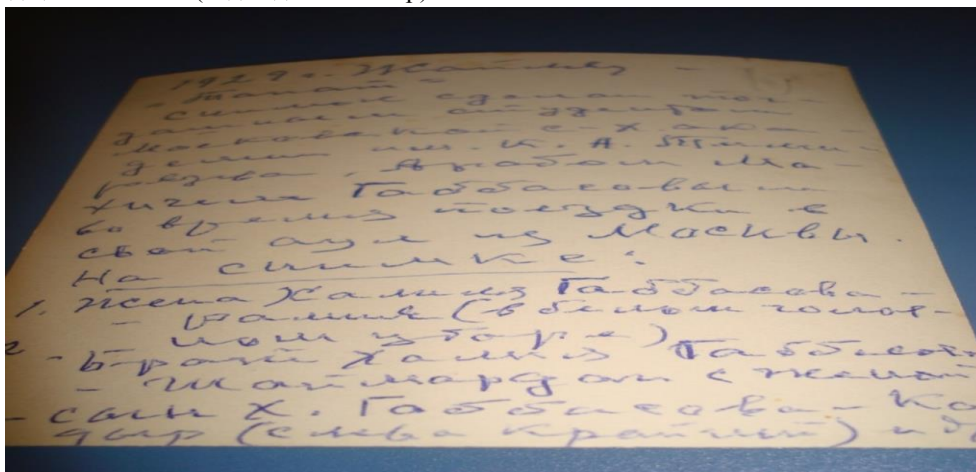 1929 г. Жайляу -
- Тапап
снимок сделан тог-
дашним студентом
московской с-х ака-
демии им. К. А. Тими-
рязева. Арабом Ма-
Габбасовым
во время поездки в
свой аул из Москвы.
На снимке:
1. Жена Халиля Габбасова -
- (в белом голов-
ном уборе)
2 - Брат Халиля Габбасова
- Шаймардан с женой
- сын Х. Габбасова - Ка
дыр (слева крайний) и д